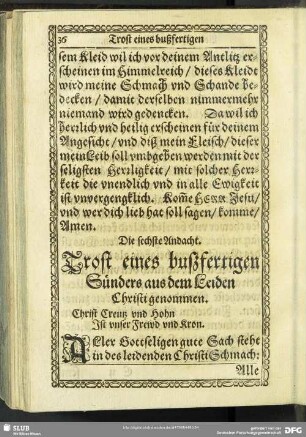 36 Trost eines bußfertigen
sem Kleid wil ich vor deinem Antlitz er-
scheinen im Himmelreich / dieses Kleidt
wird meine Schmach vnd Schande be-
decken / damit derselben nimmermehr
niemand wird gedencken. Da wil ich
herrlich vnd heilig erscheinen für deinem
Angesicht / vnd diß mein Fleisch / dieser
mein Leib soll vmbgeben werden mit der
seligsten Herrligkeit / mit solcher Herr-
ligkeit die vnendlich vnd in alle Ewigkeit
ist vnvergengklich. Kom̃e HErr Jesu /
vnd wer dich lieb hat soll sagen / komme /
Amen.
Die sechste Andacht.
Trost eines bußfertigen
Sünders aus dem Leiden
Christi genommen.
Christ Creutz vnd Hohn
Ist vnser Frewd vnd Kron.
ALler Gottseligen gute Sach stehe
in des leidenden Christi Schmach:
Alle
SLUB
Wir führen Wissen.
gefördert von der
Deutschen Forschungsgemeinschaft